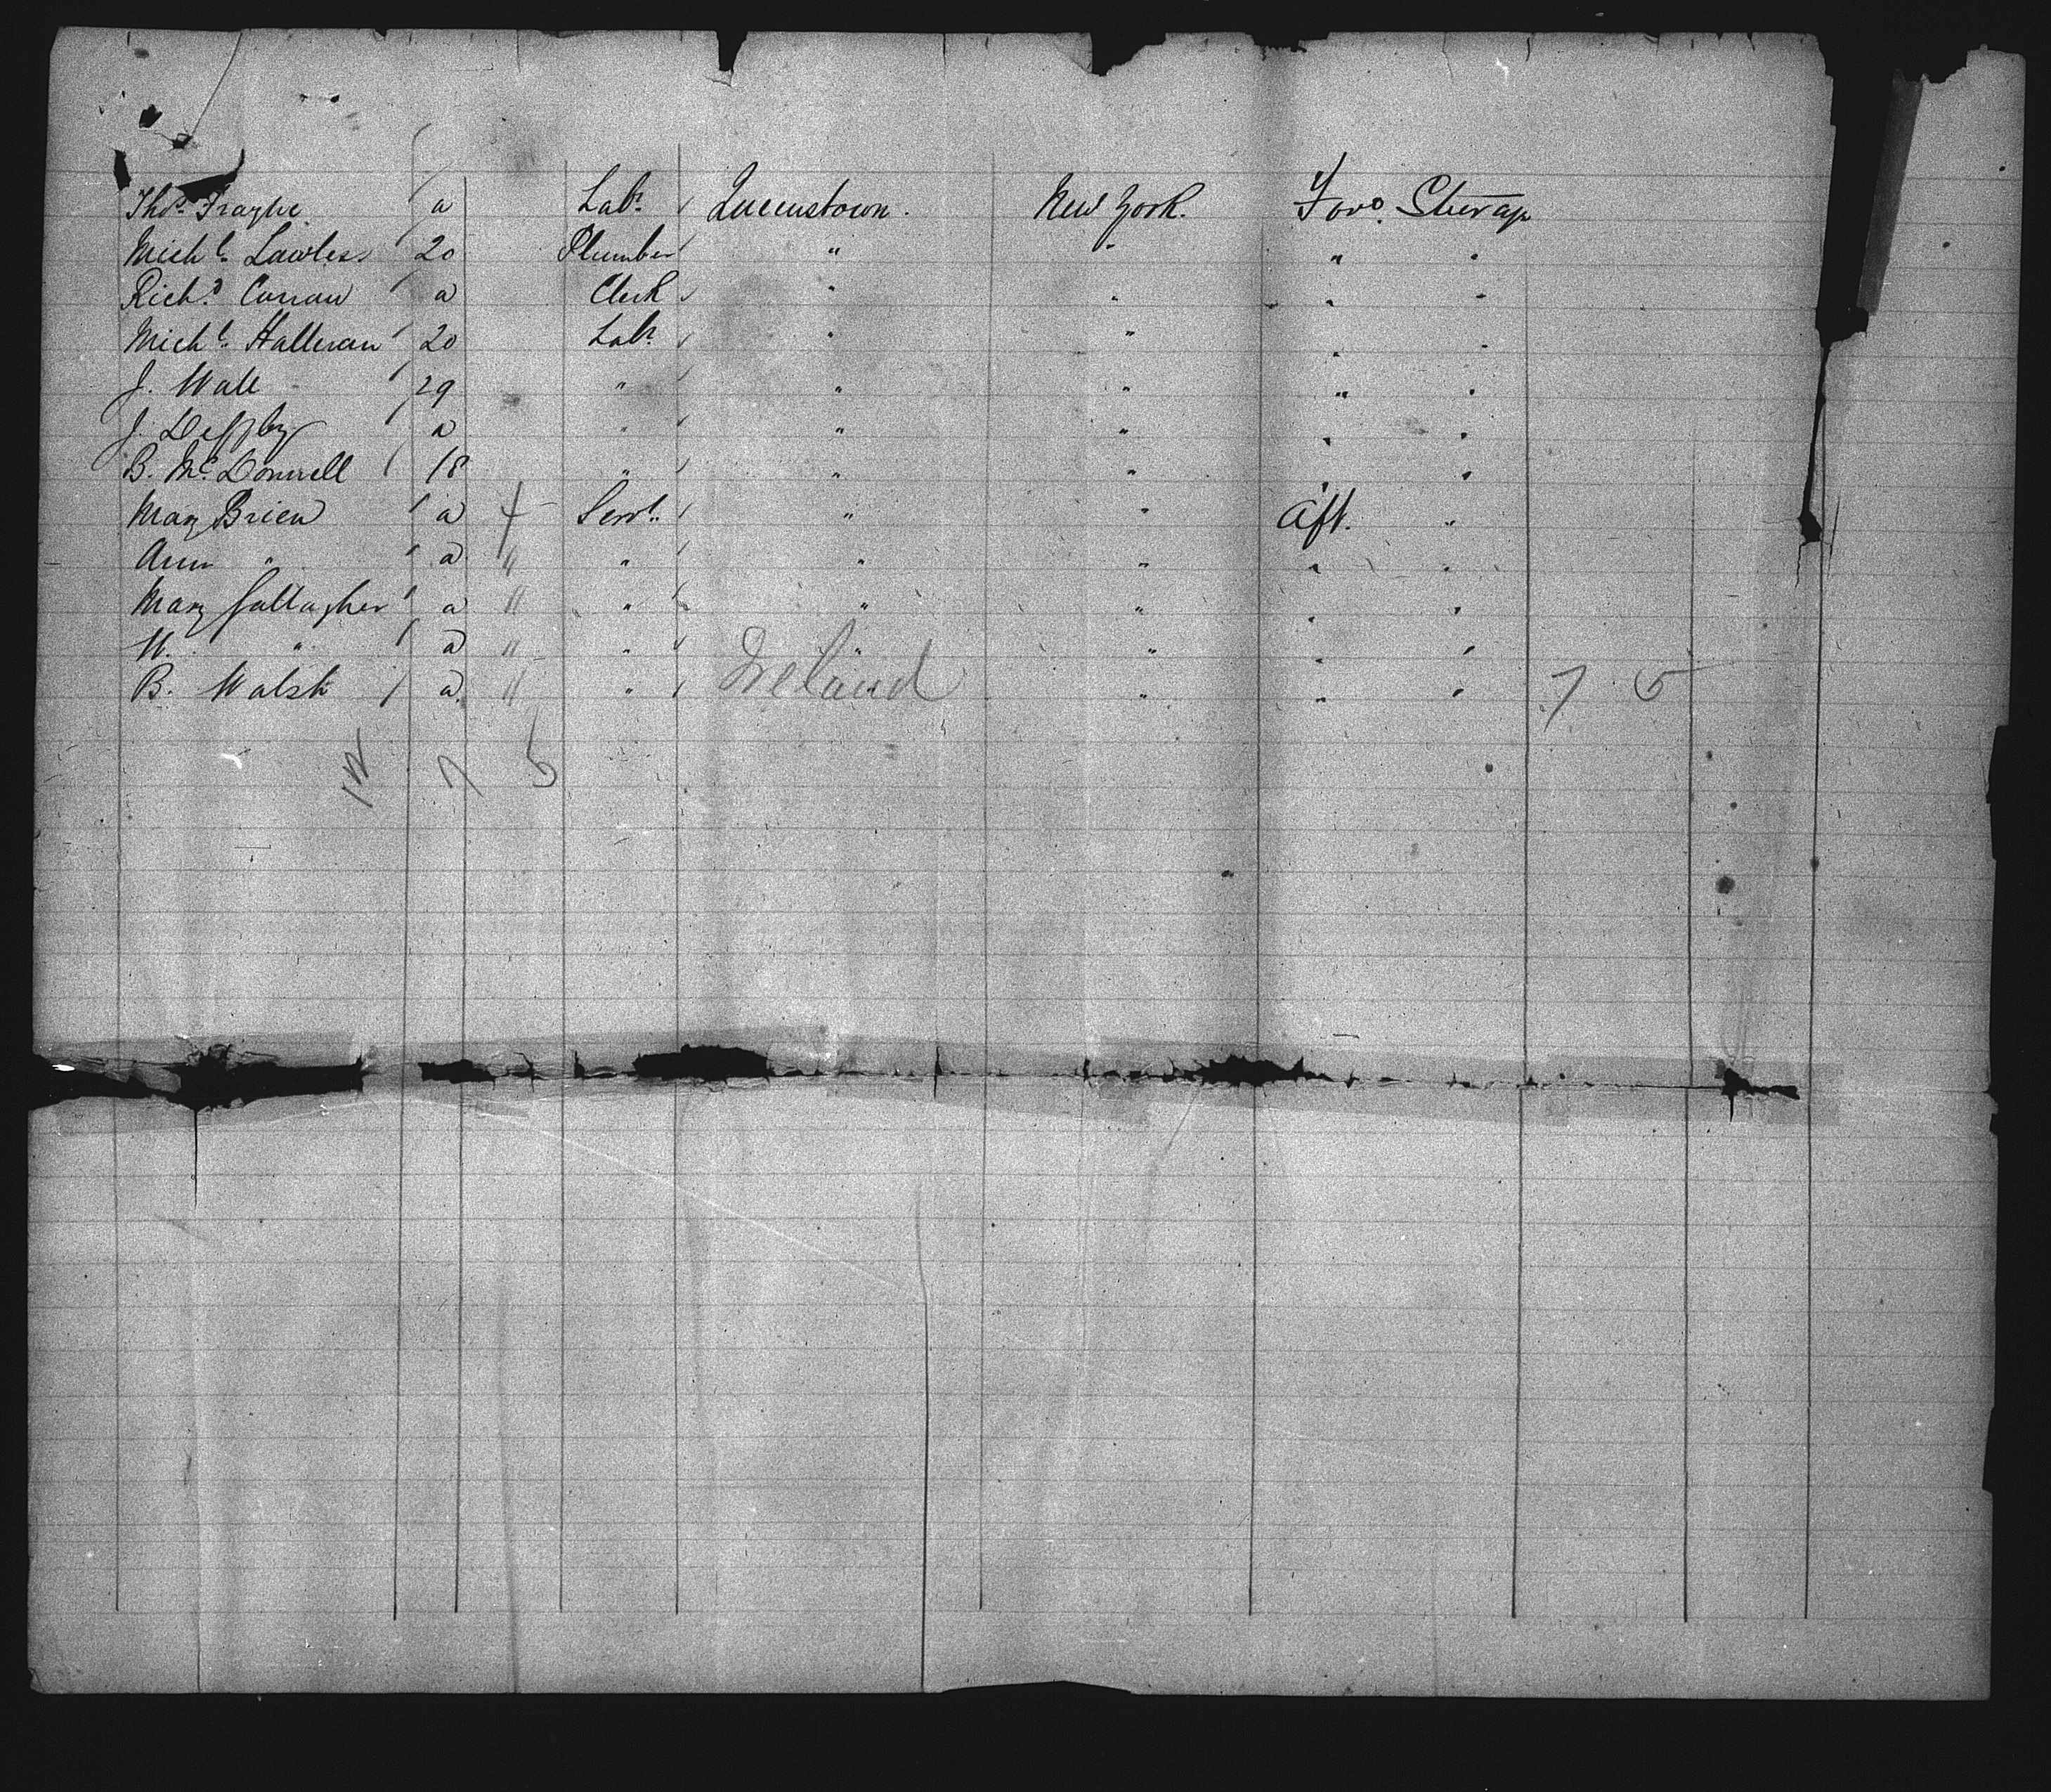 Thos. Frayhe a Labr. Queenstown. New York. Forwd. Steerage
Michl. Lawless 20 Plumber " " " "
Richd. Curran a Clerk " " " "
Michl. Halleran 20 Labr. " " " "
J. Wall 29 " " " " "
J. a " " " " "
B. McDonnell 18 " " " "
Mary Brien a f Servt. " " Aft. "
Ann " a " " " " " "
Mary Gallagher a " " " " " "
W. " a " " " " " "
B. Walsh a " " " Ireland " " " 7 5
12 7 5